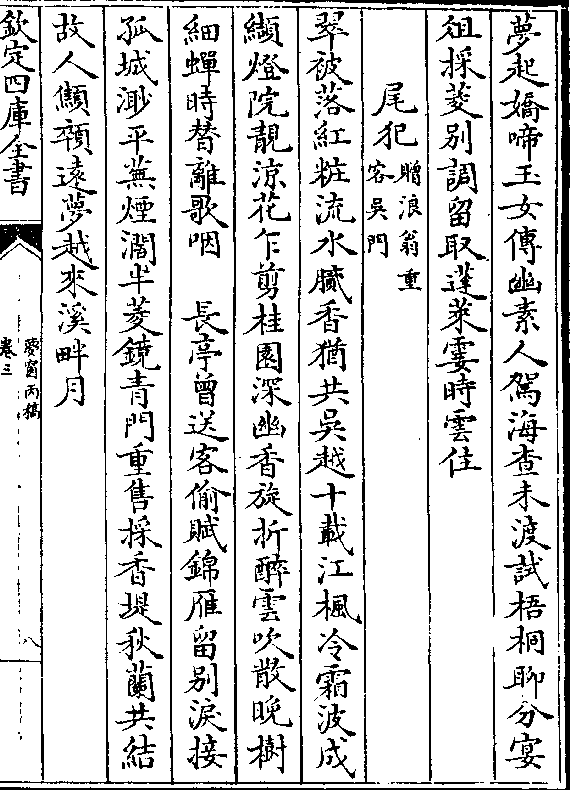 夢起嬌啼玉女傳幽素人駕海查未渡試梧桐聊分宴
俎採菱别調留取蓬萊霎時雲住
尾犯贈浪翁重客吳門
翠被落紅粧流水膩香猶共吳越十載江楓冷霜波成
纈燈院靚涼花乍剪桂園深幽香旋折醉雲吹散晚樹
細蟬時替離歌咽　長亭曾送客偷賦錦雁留别淚接
孤城渺平蕪煙濶半菱鏡青門重售採香堤秋蘭共結
故人顦顇遠夢越來溪畔月
欽定四庫全書
夢窗丙稿
卷三
八